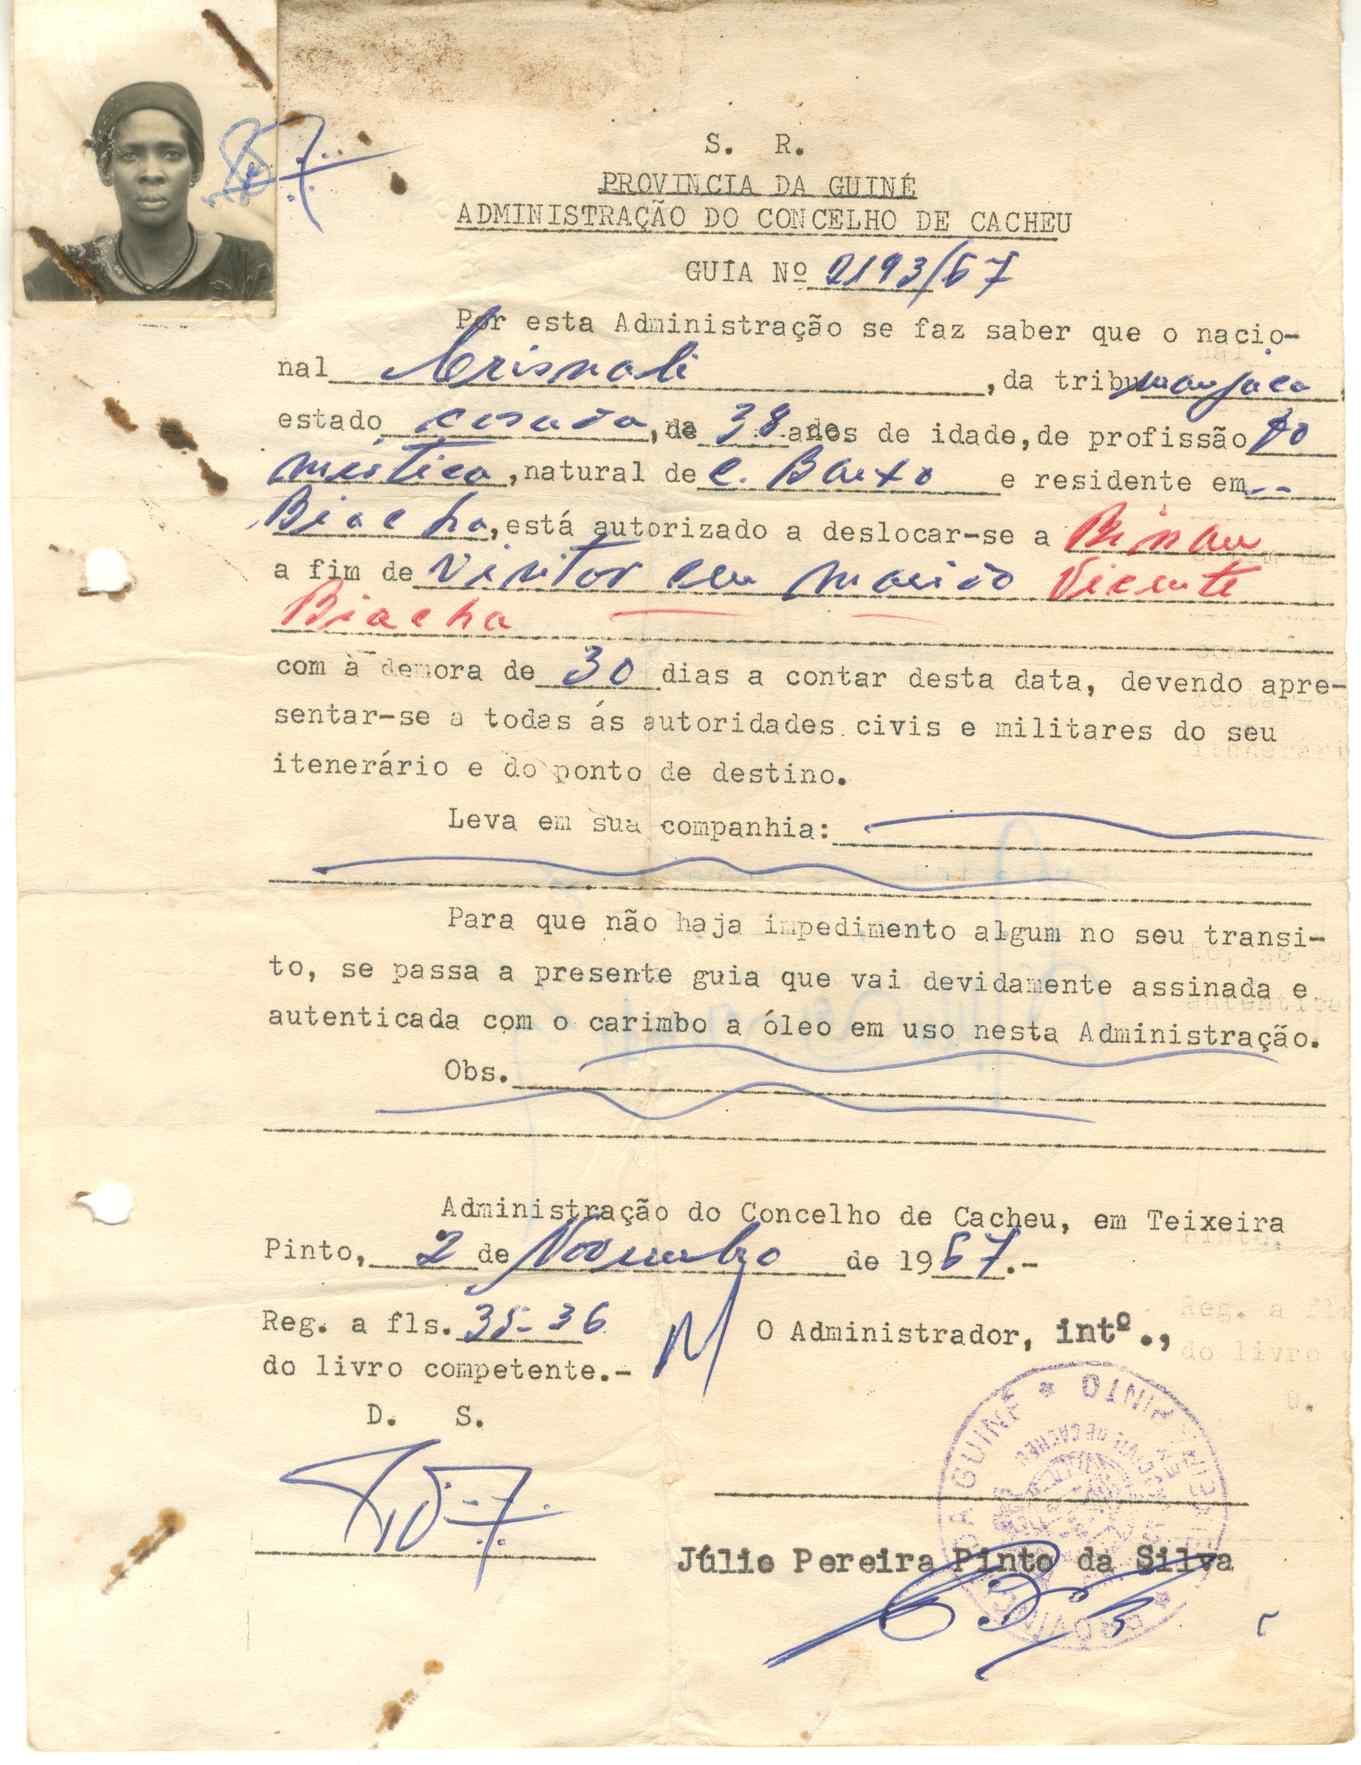 S. R.
PROVINCIA DA GUINÉ
ADMINISTRAÇÃO DO CONCELHO DE CACHEU
GUIA Nº 2193/67
Por esta Administração se faz saber que o nacio-
nal, da tribu manjaca,
estado casada, de 38 anos de idade, de profissão do
mestica, natural de C. Baixo e residente em --
Biacha, está autorizado a deslocar-se a Binau
a fim de visitar seu marido Vicente
Biacha
com à demora de 30 dias a contar desta data, devendo apre-
sentar-se a todas ás autoridades civis e militares do seu
itenerário e do ponto de destino.
Leva em sua companhia:
Para que não haja impedimento algum no seu transi-
to, se passa a presente guia que vai devidamente assinada e
autenticada com o carimbo a óleo em uso nesta Administração.
Obs.
Administração do Concelho de Cacheu, em Teixeira
Pinto, 2 de Novembro de 1967.-
Reg. a fls. 35-36
O Administrador, intº.,
do livro competente.-
D. S.
Júlio Pereira Pinto da Silva